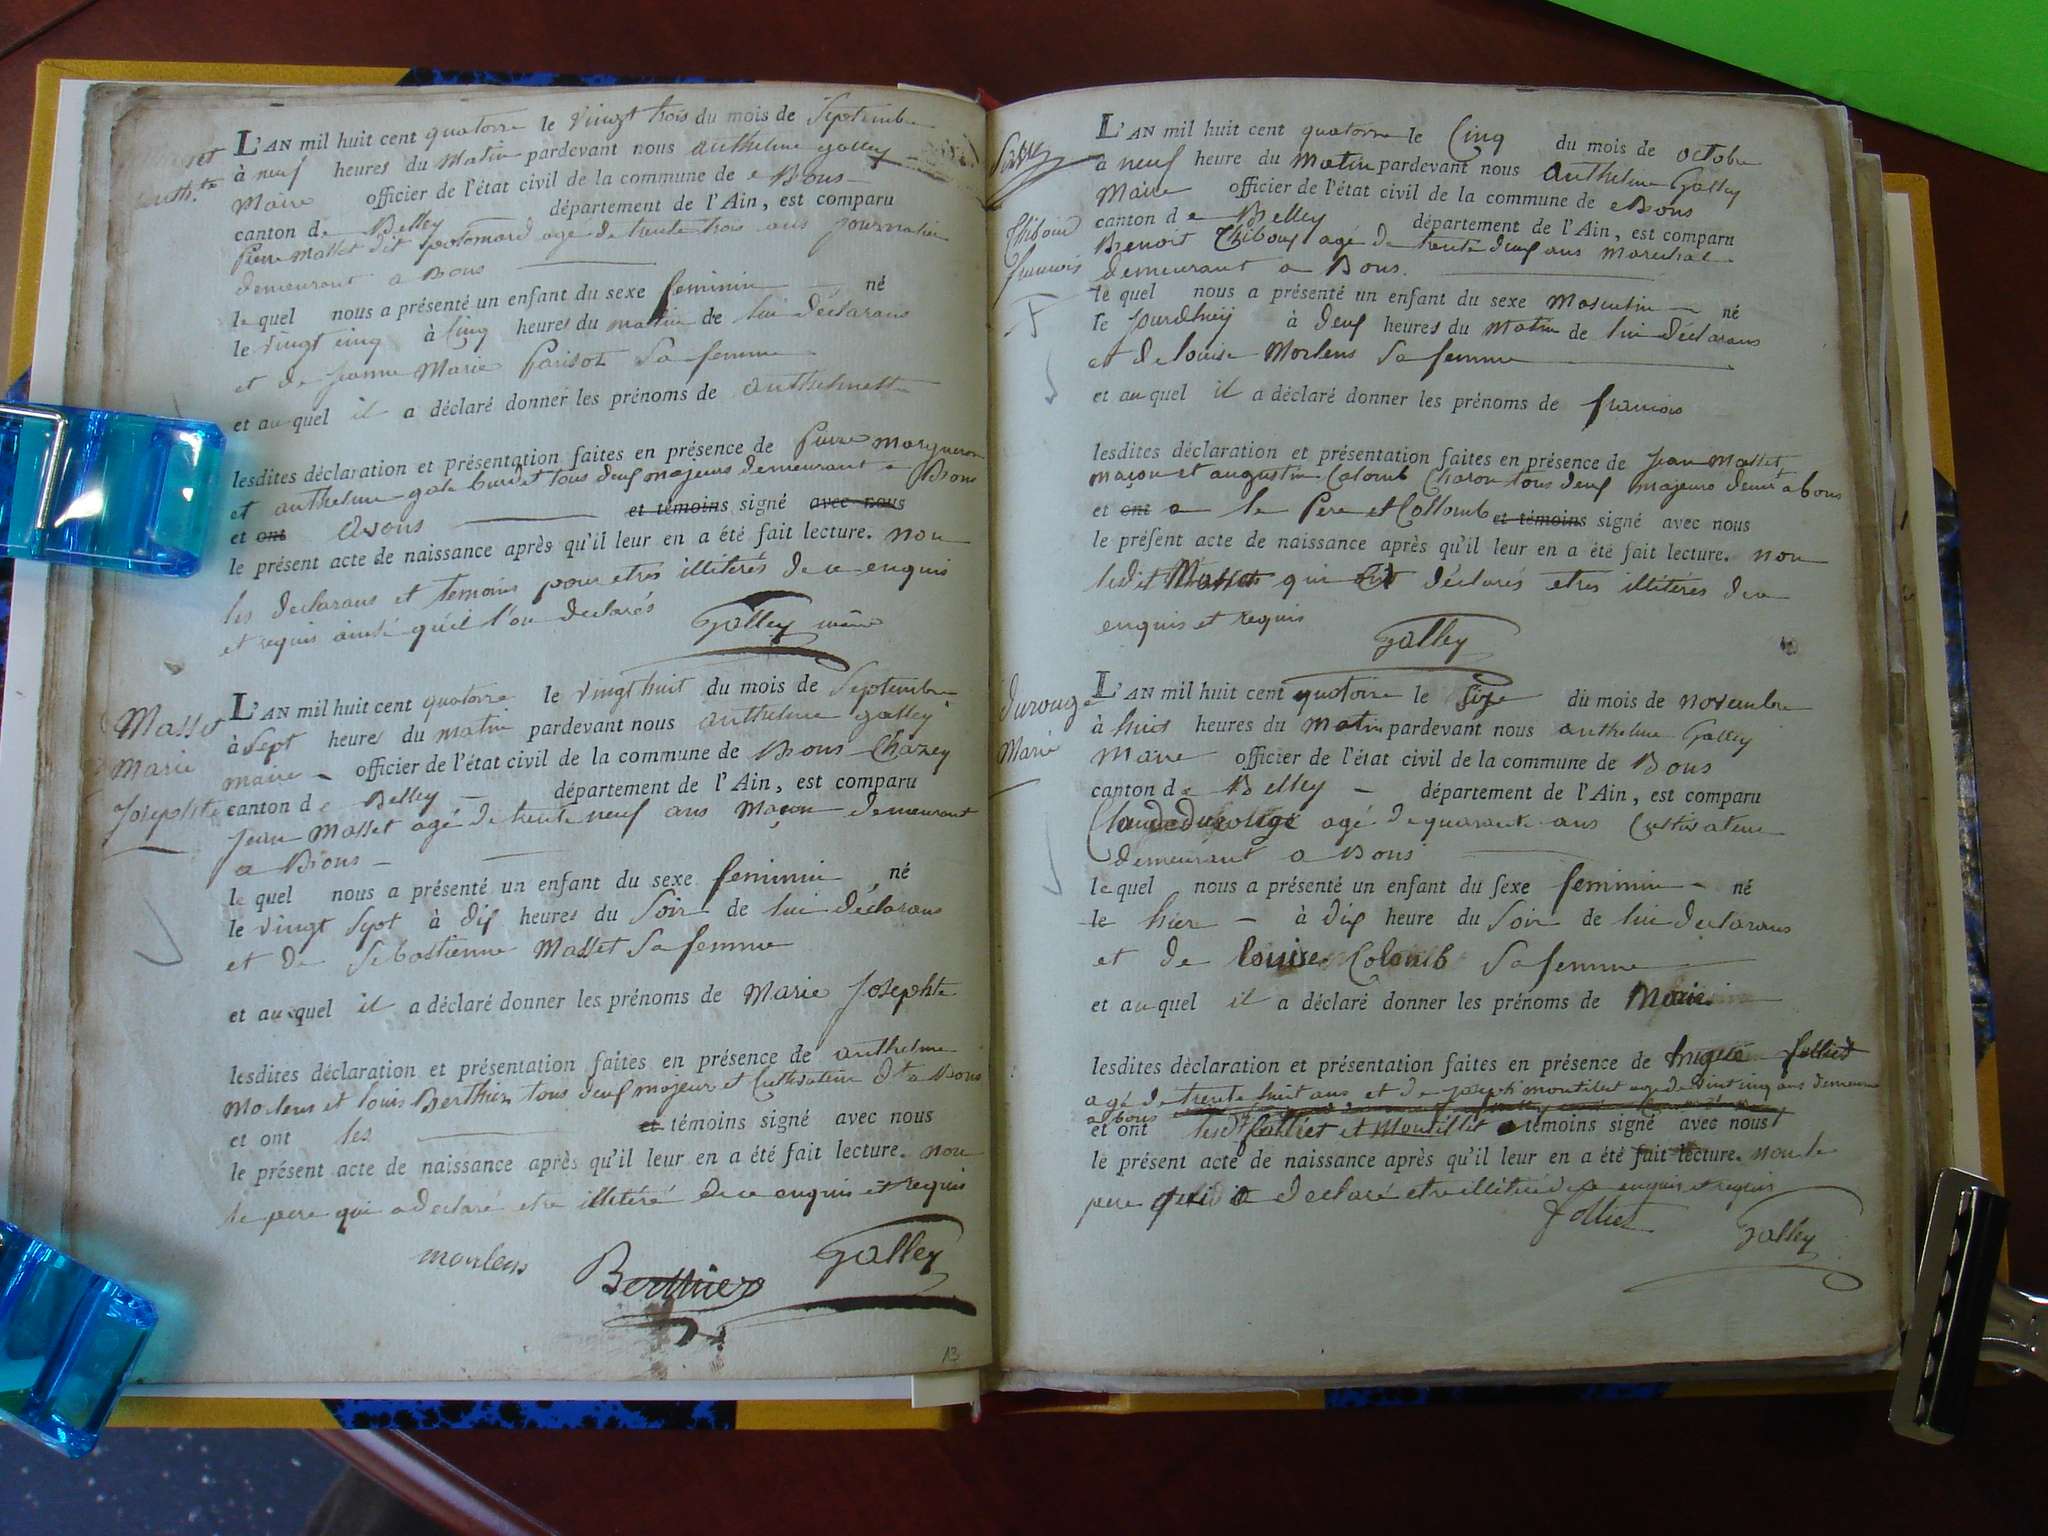 L'AN mil huit cent quatorze le vingt trois du mois de Septembre
à neuf heures du Matin pardevant nous anthelme galley
Maire officier de l'état civil de la commune de Bons
canton de Belley département de l'Ain, est comparu
Pierre Masset dit agé de trente trois ans journalier
demeurant a Bons
le quel nous a présenté un enfant du sexe feminin né
le vingt cinq à Cinq heures du mattin de lui déclarans
et de Jeanne Marie Parisot Sa femme
et au quel il a déclaré donner les prénoms de anthelmette
lesdites déclaration et présentation faites en présence de Pierre Margueron
et anthelme tous deux majeurs demeurant a Bons
et ont avons et témoins signé avec nous
le présent acte de naissance après qu'il leur en a été fait lecture. non
les declarans et temoins pour etres illiterés de ce enquis
et requis ainsi qu'il l'on declarés
Galley maire
Masset
Marie
Josephte
L'AN mil huit cent quatorze le vingt huit du mois de Septembre
à Sept heures du matin pardevant nous anthelme galley
maire officier de l'état civil de la commune de Bons Chazey
canton de Belley département de l'Ain, est comparu
Jean Masset agé de trente neuf ans Maçon demeurant
a Bons
le quel nous a présenté un enfant du sexe feminin né
le vingt Sept à dix heures du Soir de lui déclarans
et de Sebastienne Masset Sa femme
et au quel il a déclaré donner les prénoms de Marie Josephte
lesdites déclaration et présentation faites en présence de anthelme
Morlens et louis Berthier tous deux majeur et Cultivateur dt a Bons
et ont les et témoins signé avec nous
le présent acte de naissance après qu'il leur en a été fait lecture. non
le pere qui a declaré etre illitéré de ce enquis et requis
morlens Berthier Galley
13
Thiboud
francois
L'AN mil huit cent quatorze le Cinq du mois de octobre
à neuf heure du matin pardevant nous anthelme Galley
Maire officier de l'état civil de la commune de Bons
canton de Belley département de l'Ain, est comparu
Benoit Thiboux agé de trente deux ans marechal
demeurant a Bons.
le quel nous a présenté un enfant du sexe Masculin né
le jourdhuy à deux heures du Matin de lui déclarans
et de louise Morlens Sa femme
et au quel il a déclaré donner les prénoms de francois
lesdites déclaration et présentation faites en présence de Jean Masset
maçon et augustin Colomb Charon tous deux majeurs demt a bons
et ont a le Pere et Collomb et témoins signé avec nous
le présent acte de naissance après qu'il leur en a été fait lecture. non
ledit Masset qui déclarés etres illitérés de ce
enquis et requis
Galley
Durouge
Marie
L'AN mil huit cent quatorze le Sixe du mois de novembre
à huit heures du matin pardevant nous anthelme Galley
Maire officier de l'état civil de la commune de Bons
canton de Belley département de l'Ain, est comparu
Claude durouge agé de quarante ans Cultivateur
demeurant a Bons
le quel nous a présenté un enfant du sexe feminin né
le hier à dix heure du Soir de lui declarans
et de louise Colomb Sa femme
et au quel il a déclaré donner les prénoms de Marie
lesdites déclaration et présentation faites en présence de folliet
agé de trente huit ans et de moutillet age de vint cinq ans demeurant
a bons
et ont lesdt folliet et Moutillet témoins signé avec nous
le présent acte de naissance après qu'il leur en a été fait lecture. non le
pere a declaré etre illitiré de ce enquis et requis
folliet Galley